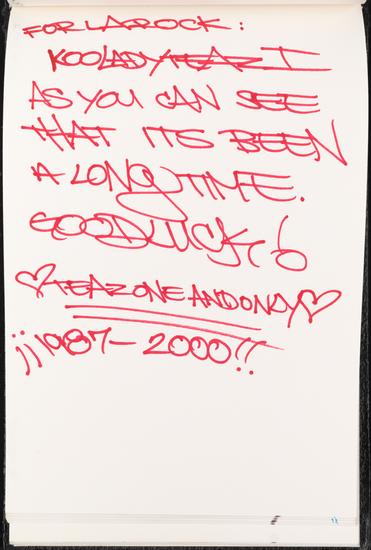 FOR LAROCK:
KOOLADYTEAZ I
AS YOU CAN SEE
THAT ITS BEEN
A LONG TIME.
GOODLUCK,!
♡TEAZ ONE AND ONLY♡
¡¡1987-2000!!